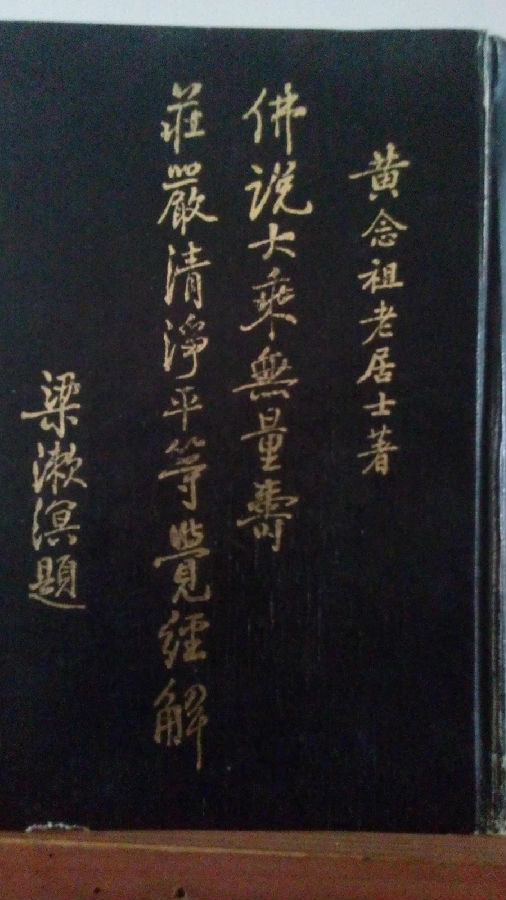 黄念祖老居士著
佛说大乘無量壽
莊嚴清淨平等覺經解
梁漱溟題